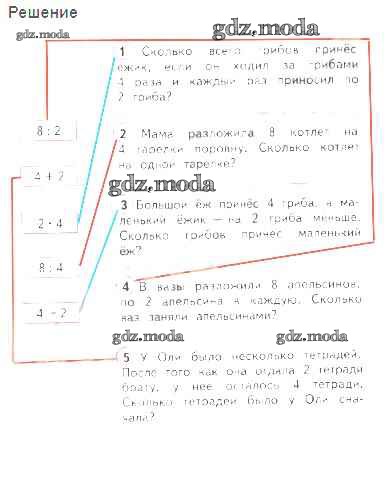 Решение
gdz.moda
gdz.moda
1 Сколько всего грибов принёс
ёжик, если он ходил за грибами
4 раза и каждый раз приносил по
2 гриба?
8 : 2
2 Мама разложила 8 котлет на
4 тарелки поровну. Сколько котлет
на одной тарелке?
4 + 2
gdz.moda
3 Большой ёж принёс 4 гриба, а ма-
ленький ёжик — на 2 гриба меньше.
Сколько грибов принёс маленький
ёж?
2 · 4
8 : 4
4 В вазы разложили 8 апельсинов,
по 2 апельсина в каждую. Сколько
ваз заняли апельсинами?
4 − 2
gdz.moda
gdz.moda
5 У Оли было несколько тетрадей.
После того как она отдала 2 тетради
брату, у неё осталось 4 тетради.
Сколько тетрадей было у Оли сна-
чала?